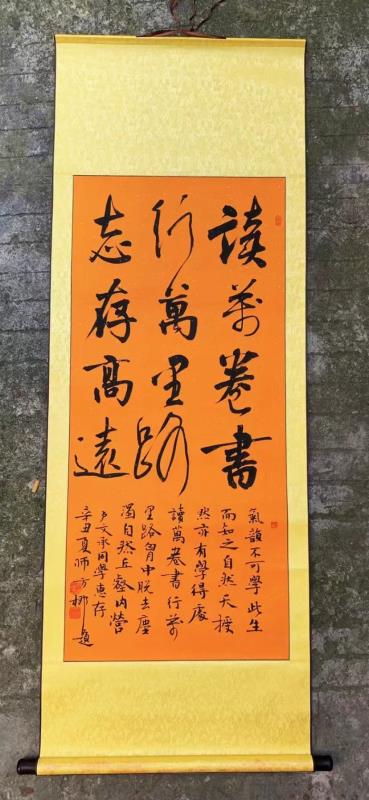 读萬卷書
行萬里路
志存高遠
氣韻不可學此生
而知之自然天授
然亦有學得處
讀萬卷書行萬
里路胸中脱去塵
濁自然丘壑内營
文承同學惠存
辛丑夏師方題